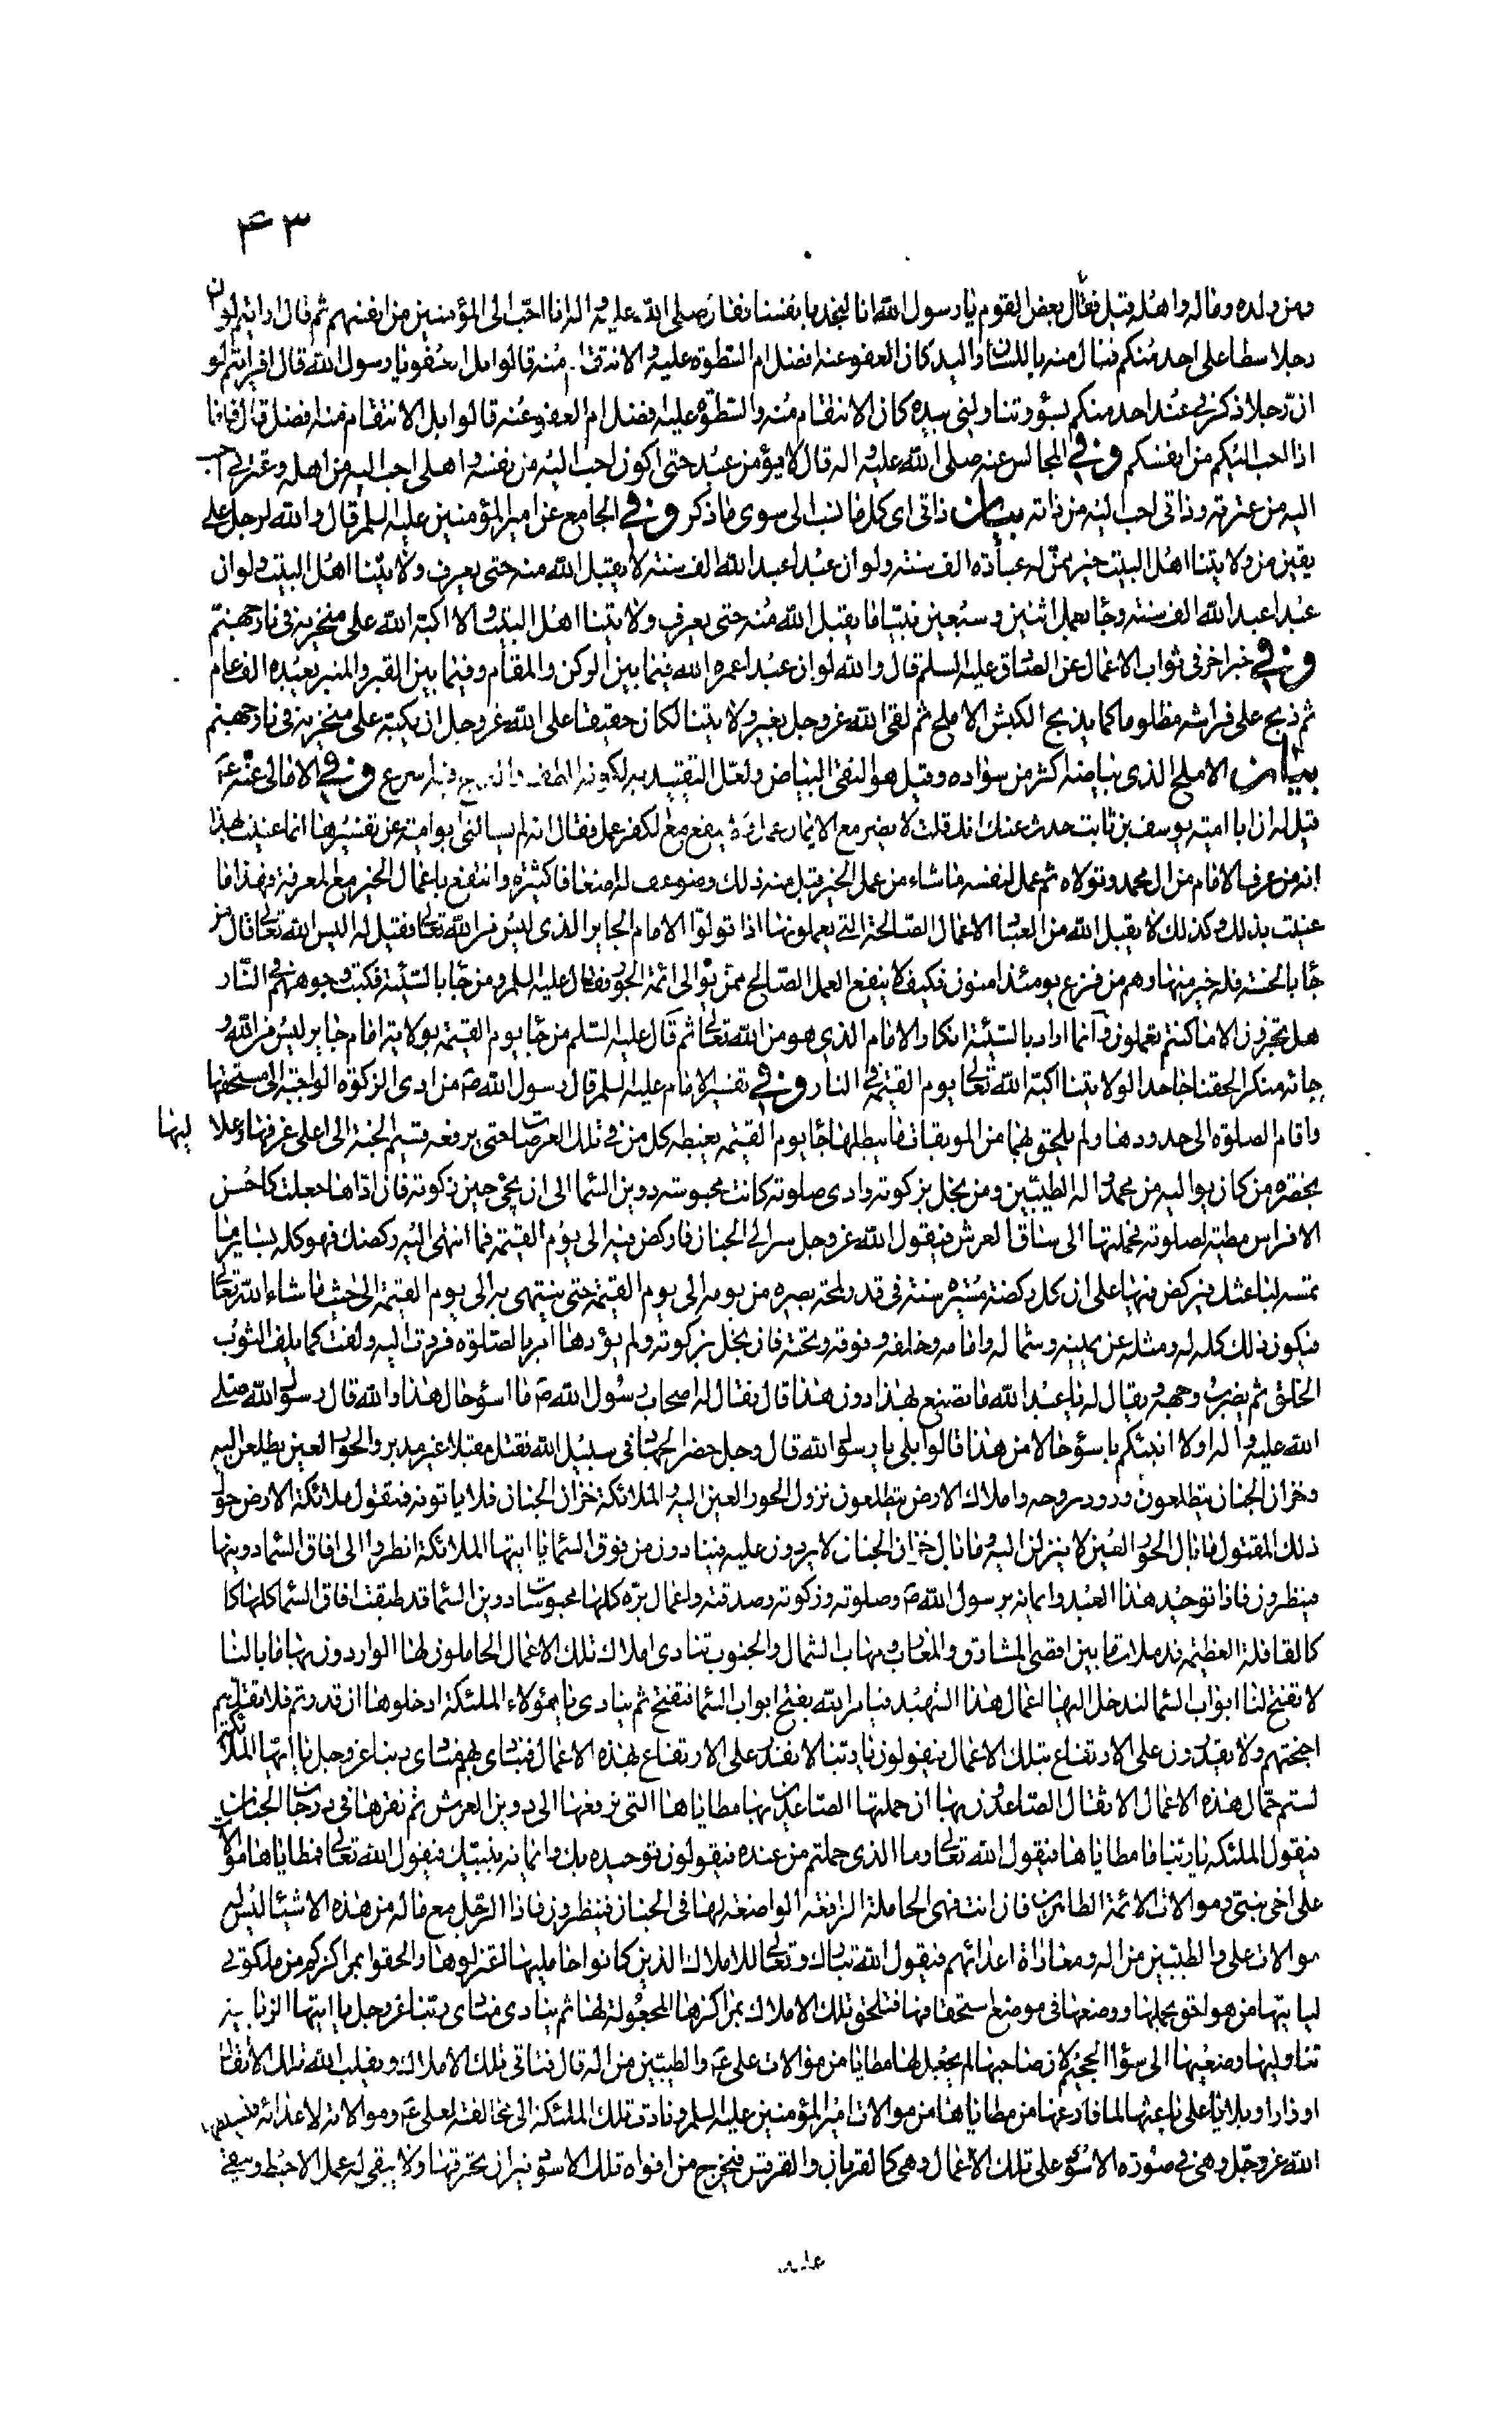 ۴۳
ومن ولده وماله واهله قيل فقال بعض القوم يا رسول الله انا لنجد بانفسنا فقال صلى الله عليه واله انا احب الى المؤمنين من انفسهم ثم قال ارايتم لو ان
رجلا سطا على احد منكم فنال منه باللسان واليد كان العفو عنه افضل ام السطوة عليه والانتقام منه قالوا بل العفو يا رسول الله قال افرايتم لو
ان رجلا ذكرني عند احد منكم بسوء وتناولني بيده كان الانتقام منه والسطوة عليه افضل ام العفو عنه قالوا بل الانتقام منه افضل قال فانا
اذا احب اليكم من انفسكم وفي المجالس عنه صلى الله عليه واله قال لا يؤمن عبد حتى اكون احب اليه من نفسه واهلى احب اليه من اهله وعترتي احب
اليه من عترته وذاتى احب اليه من ذاته بيان ذاتى اى كل ما نسب الى سوى ما ذكر وفي الجامع عن امير المؤمنين عليه السلم قال والله لرجل على
يقين من ولايتنا اهل البيت خير ممن له عبادة الف سنة ولو ان عبدا عبد الله الف سنة لا يقبل الله منه حتى يعرف ولايتنا اهل البيت ولو ان
عبدا عبد الله الف سنة وجا بعمل اثنين وسبعين نبيا ما يقبل الله منه حتى يعرف ولايتنا اهل البيت والا اكبه الله على منخريه فى نار جهنم
وفي خبر اخر فى ثواب الاعمال عن الصادق عليه السلم قال والله لو ان عبدا عمره الله فيما بين الركن والمقام وفيما بين القبر والمنبر يعبده الف عام
ثم ذبح على فراشه مظلوما كما يذبح الكبش الاملح ثم لقى الله عز وجل بغير ولايتنا لكان حقيقا على الله عز وجل ان يكبه على منخريه فى نار جهنم
بيان الاملح الذى بياضه اكثر من سواده وقيل هو النقى البياض ولعل التقييد به لكونه الطف والذبح فيه اسرع وفي الامالى عنه ع
قيل له ان ابا امية يوسف بن ثابت حدث عنك انك قلت لا يضر مع الايمان عمل ولا ينفع مع الكفر عمل فقال انه لم يسالنى ابو امية عن تفسيرها انما عنيت بهذا
انه من عرف الامام من ال محمد وتولاه ثم عمل لنفسه ما شاء من عمل الخير قبل منه ذلك وضوعف له اضعافا كثيرة وانتفع باعمال الخير مع المعرفة فهذا ما
عنيت بذلك وكذلك لا يقبل الله من العباد الاعمال الصالحة التي يعملونها اذا تولوا الامام الجاير الذى ليس من الله تعالى فقيل له اليس الله تعالى قال من
جا بالحسنة فله خير منها وهم من فزع يومئذ امنون فكيف لا ينفع العمل الصالح ممن يوالى ائمة الجور فقال عليه السلم ومن جا بالسيئة فكبت وجوههم فى النار
هل تجزون الا ما كنتم تعملون وانما اراد بالسيئة انكار الامام الذى هو من الله تعالى ثم قال عليه السلم من جا يوم القيمة بولاية امام جاير ليس من الله و
جائه منكرا لحقنا جاحدا لولايتنا اكبه الله تعالى يوم القيمة فى النار وفي تفسير الامام عليه السلم قال رسول الله ص من ادى الزكوة الواجبة الى مستحقها
واقام الصلوة الى حدودها ولم يلحق بهما من الموبقات ما يبطلها جا يوم القيمة يغبطه كل من فى تلك العرصات حتى يرفعه نسيم الجنة الى اعلى غرفها وعلاليها
بحضرة من كان يواليه من محمد واله الطيبين ومن بخل بزكوته وادى صلوته كانت محبوسة دوين السما الى ان يجي حين زكوته فان اداها جعلت كاحسن
الافراس مطية لصلوته فحملتها الى ساق العرش فيقول الله عز وجل سر الى الجنان فاركض فيه الى يوم القيمة فما انتهى اليه ركضك فهو كله بساير ما
تمسه لباعثك فيركض فيها على ان كل ركضة مسيرة سنة فى قدر لمحة بصره من يومه الى يوم القيمة حتى ينتهى به الى يوم القيمة الى حيث ما شاء الله تعالى
فيكون ذلك كله له ومثله عن يمينه وشماله وامامه وخلفه وفوقه وتحته فان بخل بزكوته ولم يؤدها امر بالصلوة فردت اليه ولفت كما يلف الثوب
الخلق ثم يضرب وجهه ويقال له يا عبد الله ما تصنع بهذا دون هذا قال فقال له اصحاب رسول الله ص ما اسؤ حال هذا والله قال رسول الله صلى
الله عليه واله اولا انبئكم باسؤ حالا من هذا قالوا بلى يا رسول الله قال رجل حضر الجهاد فى سبيل الله فقتل مقبلا غير مدبر والحور العين يطلعن اليه
وخزان الجنان يتطلعون ورود روحه واملاك الارض يتطلعون نزول الحور العين اليه والملائكة خزان الجنان فلا ياتونه فتقول ملائكة الارض حول
ذلك المقتول ما بال الحور العين لا ينزلن اليه وما بال خزان الجنان لا يردون عليه فينادون من فوق السما يا ايتها الملائكة انظروا الى افاق السما دوينها
فينظرون فاذا توحيد هذا العبد وايمانه برسول الله ص وصلوته وزكوته وصدقته واعمال بره كلها محبوسات دوين السما قد طبقت افاق السما كلها كا
كالقافلة العظيمة قد ملات ما بين اقصى المشارق والمغارب ومهاب الشمال والجنوب تنادى املاك تلك الاعمال الحاملون لها الواردون بها ما بالنا
لا تفتح لنا ابواب السما لندخل اليها اعمال هذا الشهيد فيامر الله بفتح ابواب السما فتفتح ثم ينادى يا هؤلاء الملئكة ادخلوها ان قدرتم فلا تقلهم
اجنحتهم ولا يقدرون على الارتفاع بتلك الاعمال فيقولون يا ربنا لا نقدر على الارتفاع بهذه الاعمال فينادى بهم منادى ربنا عز وجل يا ايتها الملائكة
لستم حمال هذه الاعمال الاثقال الصاعدون بها ان حملتها الصاعدين بها مطاياها التى ترفعها الى دوين العرش ثم تقرها فى درجات الجنان
فيقول الملئكة يا ربنا ما مطاياها فيقول الله تعالى وما الذى حملتم من عنده فيقولون توحيده بك وايمانه بنبيك فيقول الله تعالى فمطاياها موالات
على اخى نبيى وموالات الائمة الطاهرين فان اتت فهى الحاملة الرافعة الواضعة لها فى الجنان فينظرون فاذا الرجل مع ماله من هذه الاشيا ليس له
موالات على والطيبين من اله ومعاداة اعدائهم فيقول الله تبارك وتعالى للاملاك الذين كانوا حامليها اعتزلوها والحقوا بمراكزكم من ملكوتى
لياتيها من هو احق بحملها ووضعها فى موضع استحقاقها فتلحق تلك الاملاك بمراكزها المجعولة لها ثم ينادى منادى ربنا عز وجل يا ايتها الزبانية
تناوليها وضعيها الى سواء الجحيم لان صاحبها لم يجعل لها مطايا من موالات على ع والطيبين من اله قال فتاتى تلك الاملاك ويقلب الله تلك الاثقال
اوزارا وبلايا على باعثها لما فارقها من مطاياها من موالات امير المؤمنين عليه السلم ونادت تلك الملئكة الى مخالفته لعلى ع وموالاته لاعدائه فيسلطها
الله عز وجل وهى في صورة الاسود على تلك الاعمال وهى كالغربان والقرقس فيخرج من افواه تلك الاسود نيران تحرقها ولا يبقى له عمل الا حبط ويبقى
عليه